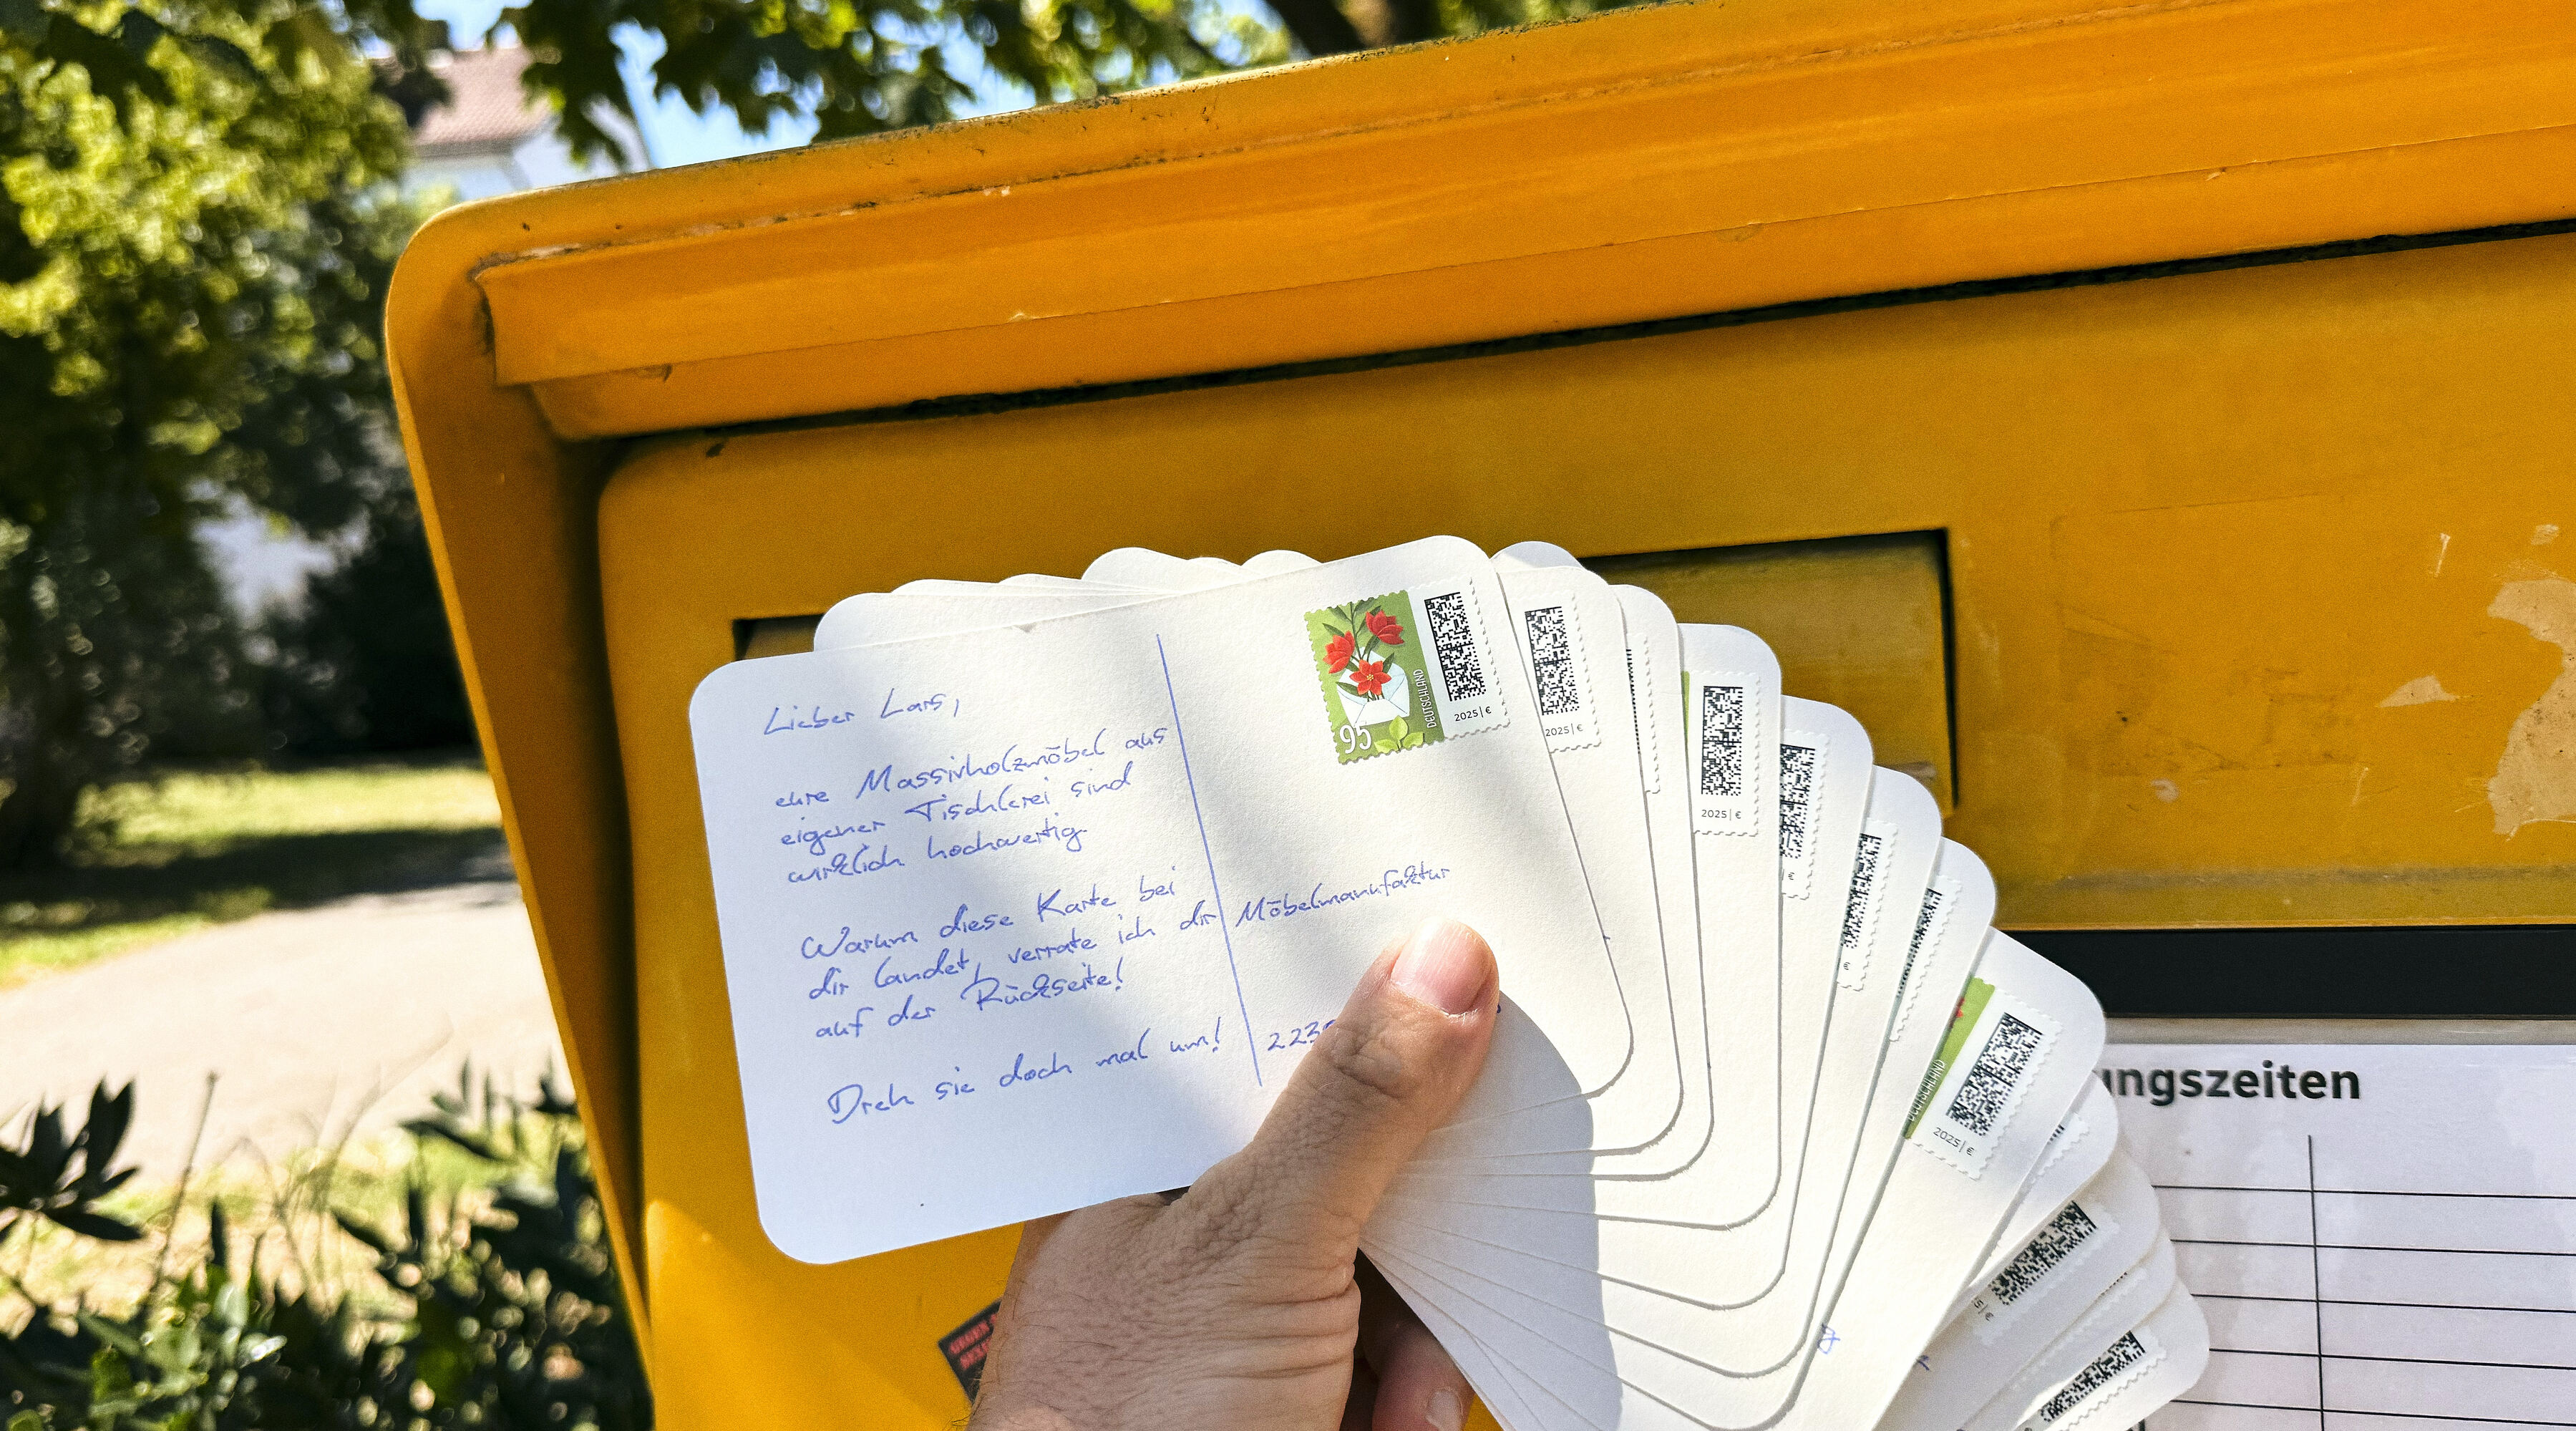 Lieber Lars,
eure Massivholzmöbel aus
eigener Tischlerei sind
wirklich hochwertig.
Warum diese Karte bei
dir landet, verrate ich dir
auf der Rückseite!
Dreh sie doch mal um!
95
DEUTSCHLAND
2025 | €
Möbelmanufaktur
223
2025 | €
2025 | €
€
€
DEUTSCHLAND
2025 | €
5 | €
ungszeiten
GEGEN